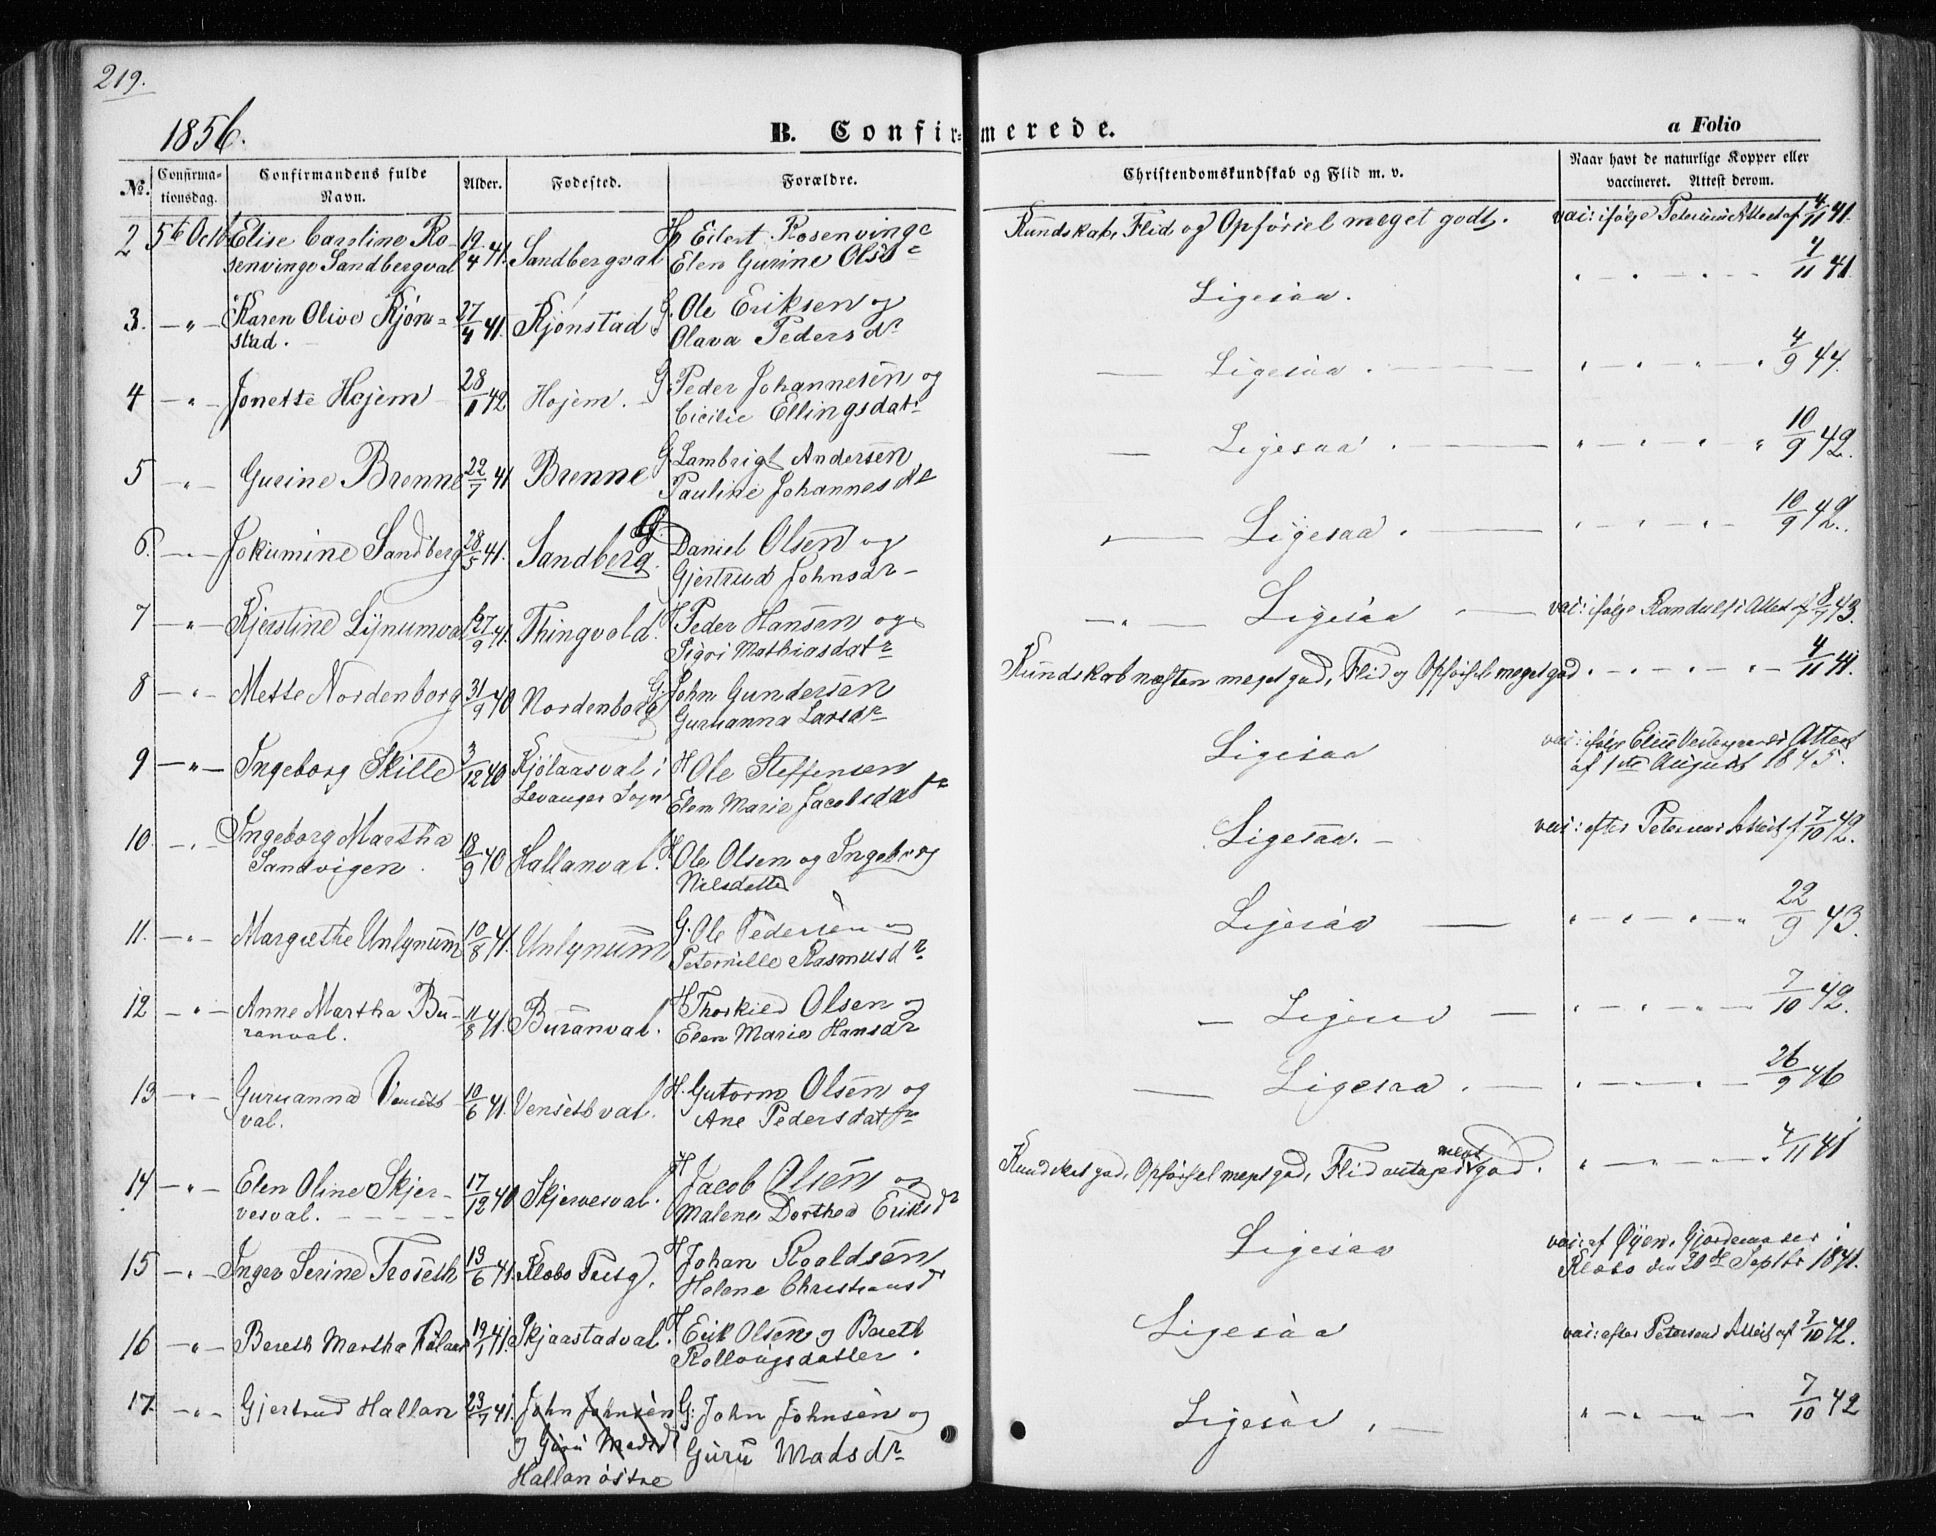 219.
1856.
B. Confirmerede.
a Folio
No. Confirmationsdag. Confirmandens fulde Navn. Alder. Fødested. Forældre. Christendomskundskab og Flid m. v. Naar havt de naturlige Kopper eller vaccineret. Attest derom.
2 5te Octb Elise Caroline Ro- 19/4 41. Sandbergval H Eilert Rosenvinge Kundskab, Flid og Opførsel meget godt. vac: ifølge Petersens Attest af 4/11 41.
senvinge Sandbergval Elen Gurine Olsd
3. — " — Karen Olive Kjøn- 27/4 41. Kjønstad. G. Ole Eriksen og Ligesaa. " — " — " — 4/11 41.
stad. Olava Pedersdr
4 — " — Jonette Hojem 28/1 42 Hojem. G. Peder Johannesen og — Ligesaa. — " — " — " 4/9 44.
Cicilie Ellingsdatr
5 — " — Gurine Brenne 22/7 41 Brenne G. Lambrigt Andersen — Ligesaa. — " — " — " 10/9 42.
Pauline Johannesdr
6. — " — Jokumine Sandberg 28/5 41. Sandberg. G. Daniel Olsen og — Ligesaa. — " — " — " — 10/9 42.
Gjertrud Johnsdr
7 — " — Kjerstine Lynumval 27/9 41. Thingvold. H Peder Hansen og — " — Ligesaa — vac: ifølge Randulfs Attest af 8/7 43.
Sigri Mathiasdatr
8 — " — Mette Nordenborg 31/9 40 Nordenborg G. John Gundersen Kundskab næsten meget god, Flid og Opførsel meget god " — " — " — 4/11 41.
Guruanna Larsdr
9 — " — Ingeborg Skille 3/12 40 Kjølaasval i H Ole Steffensen Ligesaa vac: ifølge Attest
Levanger Sogn Elen Marie Jacobsdatr af 1ste August 1845.
10. — " — Ingeborg Martha 18/9 40 Hallanval. H Ole Olsen og Ingeborg Ligesaa. — vac: efter Petersens Attest af 7/10 42.
Sandvigen. Nilsdatter
11. — " — Margrethe Unlynum 10/8 41. Unlynum G. Ole Pedersen og Ligesaa — " — " — " — " 22/9 43.
Peternille Rasmusdr
12 — " — Anne Martha Bu- 11/8 41. Buranval. H Thorkild Olsen og — Ligesaa — " — " — " — 7/10 42.
ranval. Elen Marie Hansdr
13 — " — Guruanna Venseth- 10/6 41. Vensethval. H. Gutorm Olsen og — Ligesaa. — " — " — 26/9 46
val. Ane Pedersdatr
14 — " — Elen Oline Skjer- 17/12 40 Skjervesval. H Jacob Olsen og Kundskab god, Opførsel meget god, Flid meget god. " — " — " 4/11 41
vesval. — Malene Dorthea Eriksdr
15 — " — Inger Serine Troseth 13/6 41. Klæbo H Johan Roaldsen Ligesaa vac: af Øyen, Gjordemoder i
Helene Christiansdr Klæbo den 20de Septbr 1841.
16 — " — Bereth Martha 19/1 41. Skjaastadval. H Erik Olsen og Bereth Ligesaa vac: efter Petersens Attest af 7/10 42.
Rollougsdatter.
17. — " — Gjertrud Hallan 23/7 41. John Johnsen G: John Johnsen og Ligesaa. — " — " — " — 7/10 42
og Guru Madsdr Guru Madsdr
Hallan østre